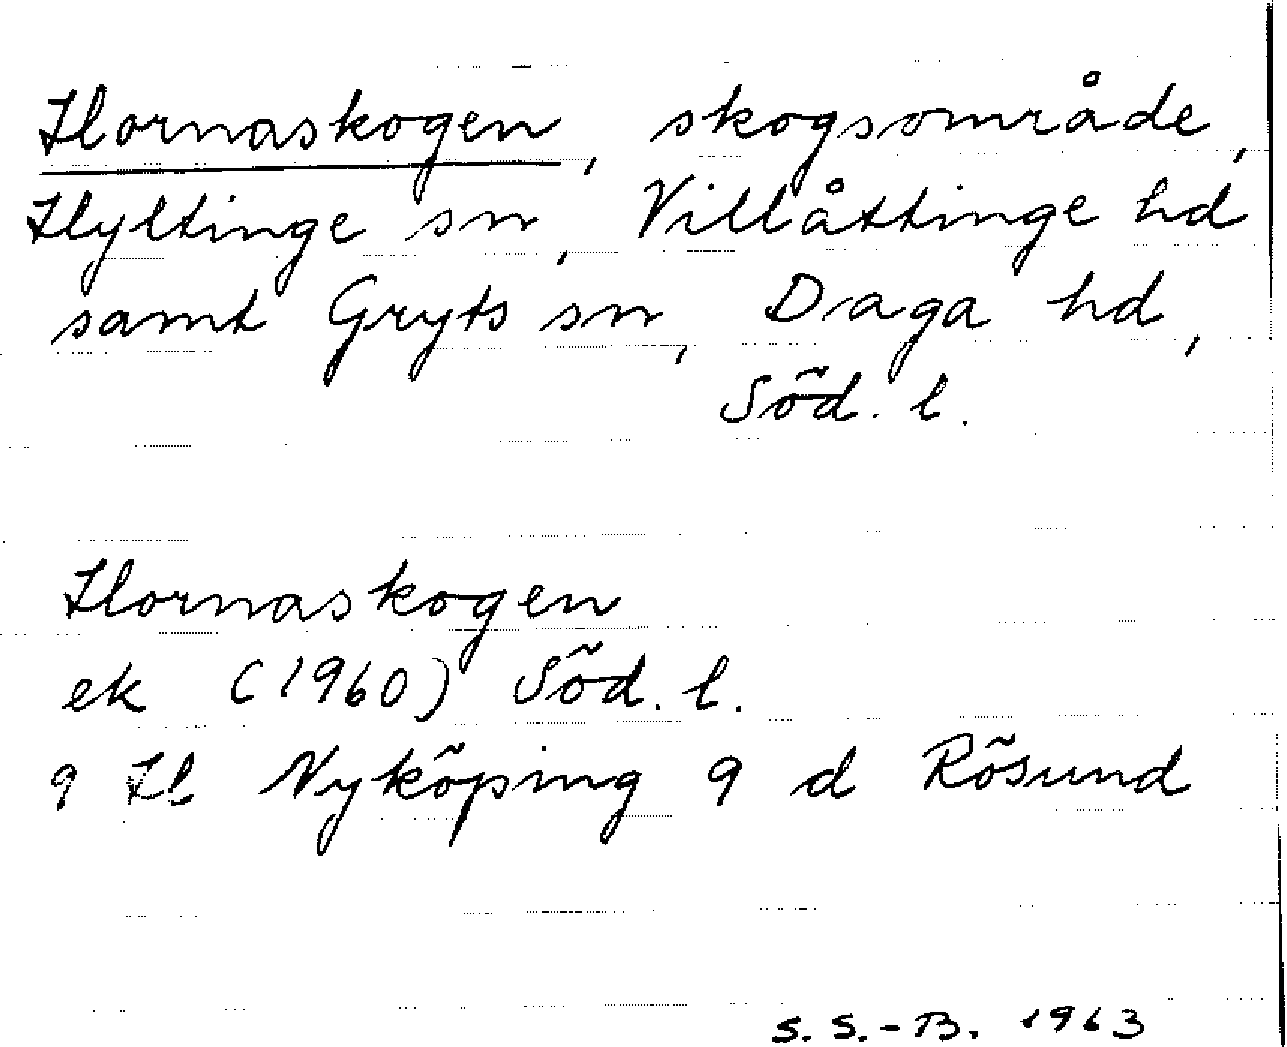 Hornaskogen, skogsområde,
Hyltinge sn, Villåttinge hd
samt Gryts sn, Daga hd,
Söd. l.
Hornaskogen
ek (1960) Söd. l.
9 H Nyköping 9 d Rösund
S. S.-B. 1963